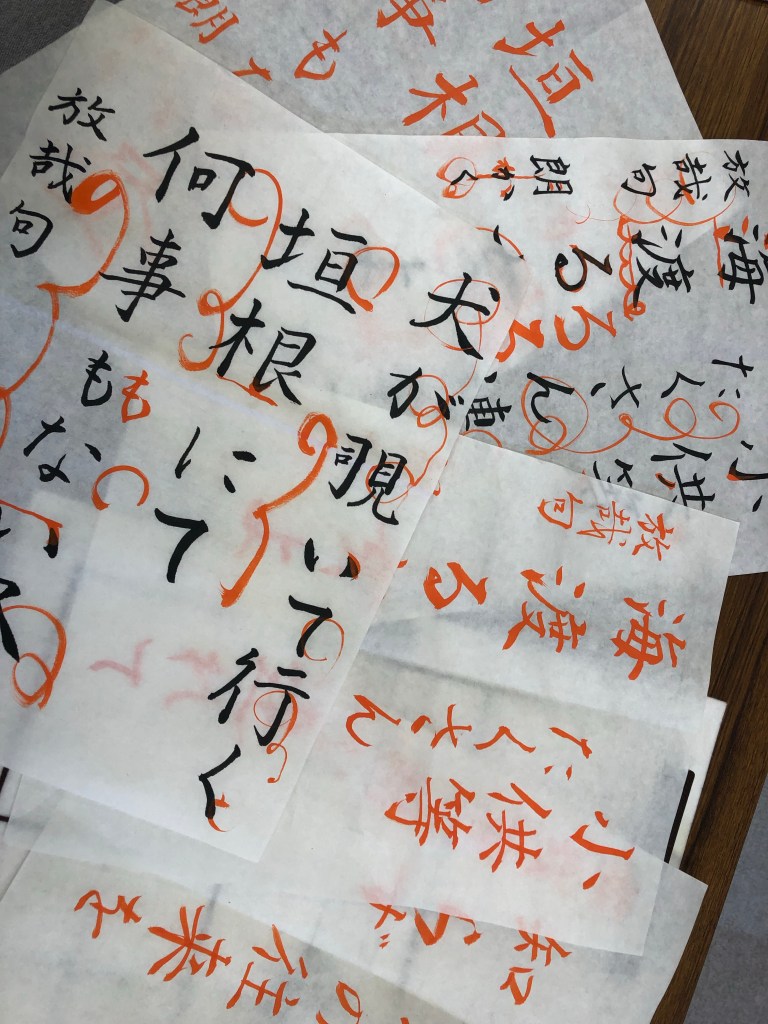 犬が覗いて行く
垣根にて
何事もも
ない
放哉句
小供
たくさん
連
海渡る
る
放哉句
朗
小供等
たくさん
海渡る
放哉句
垣根
事も
朗
の往来を
知